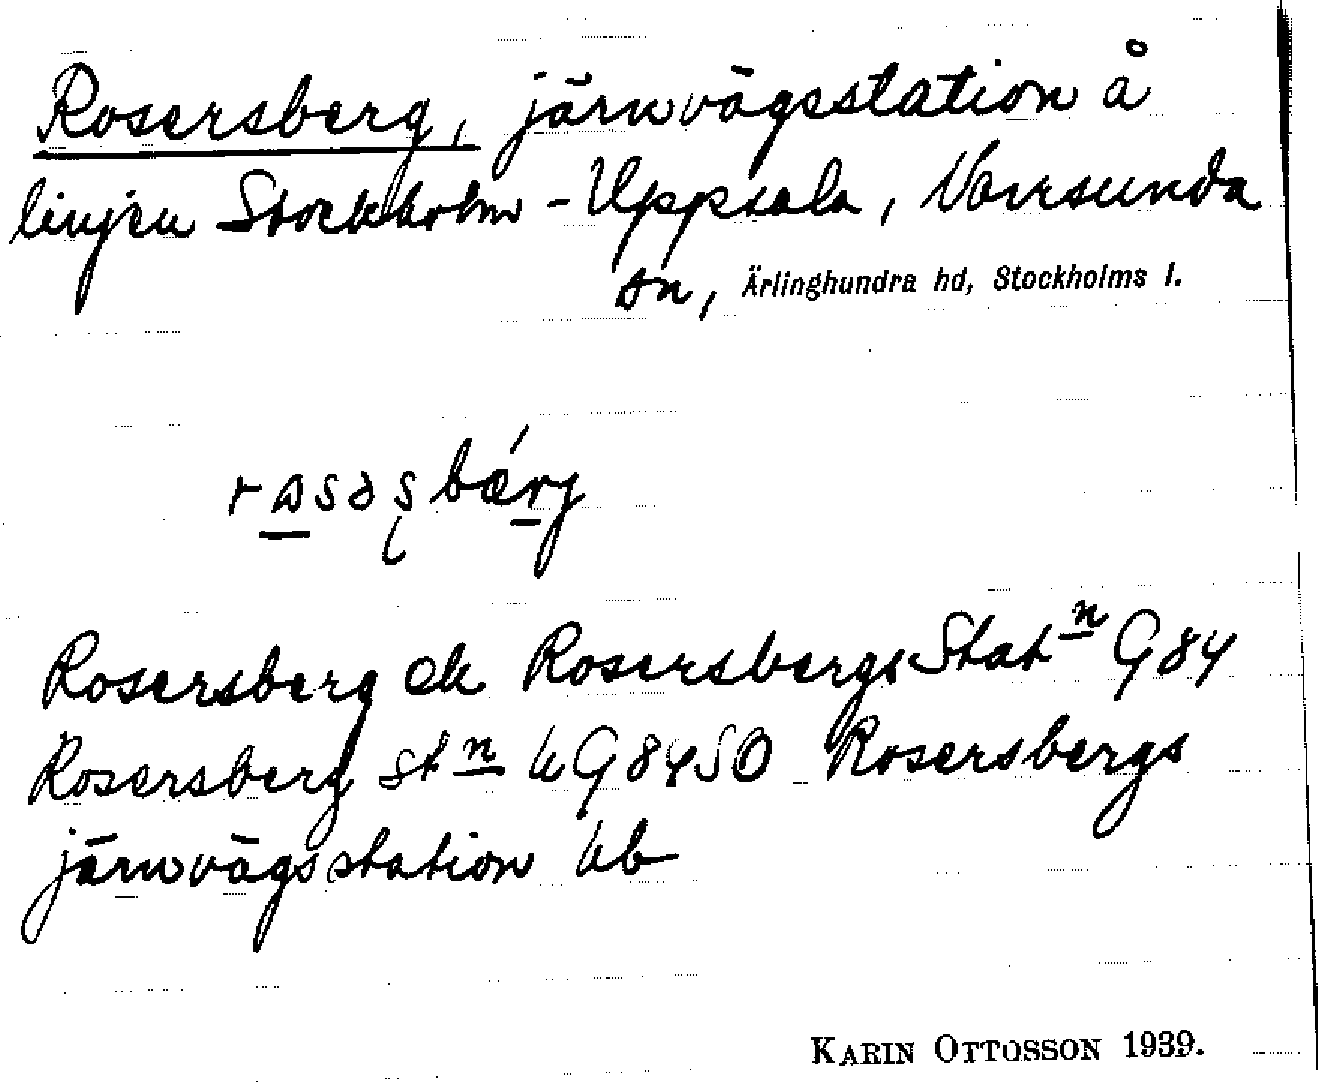 Rosersberg, järnvägsstation å
linjen Stockholm - Uppsala, Norrsunda
sn, Ärlinghundra hd, Stockholms l.
Rosersberg ek Rosersbergs Stat<u>n</u> G84
Rosersberg st<u>n</u> UG84SO Rosersbergs
järnvägsstation Ub
KARIN OTTOSSON 1939.